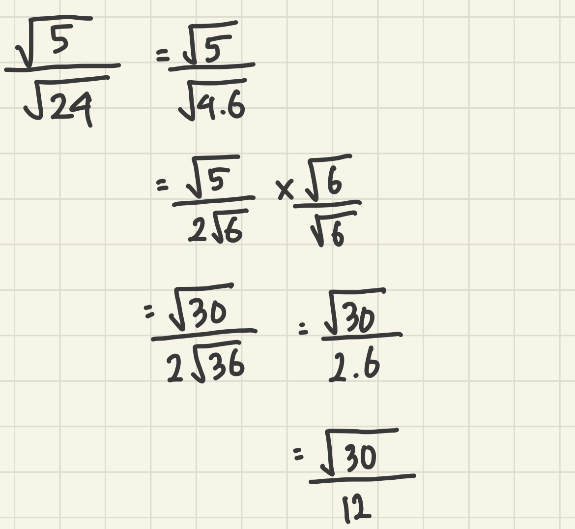 √5/√24 = √5/√4.6
= √5/2√6 × √6/√6
= √30/2√36 = √30/2.6
= √30/12